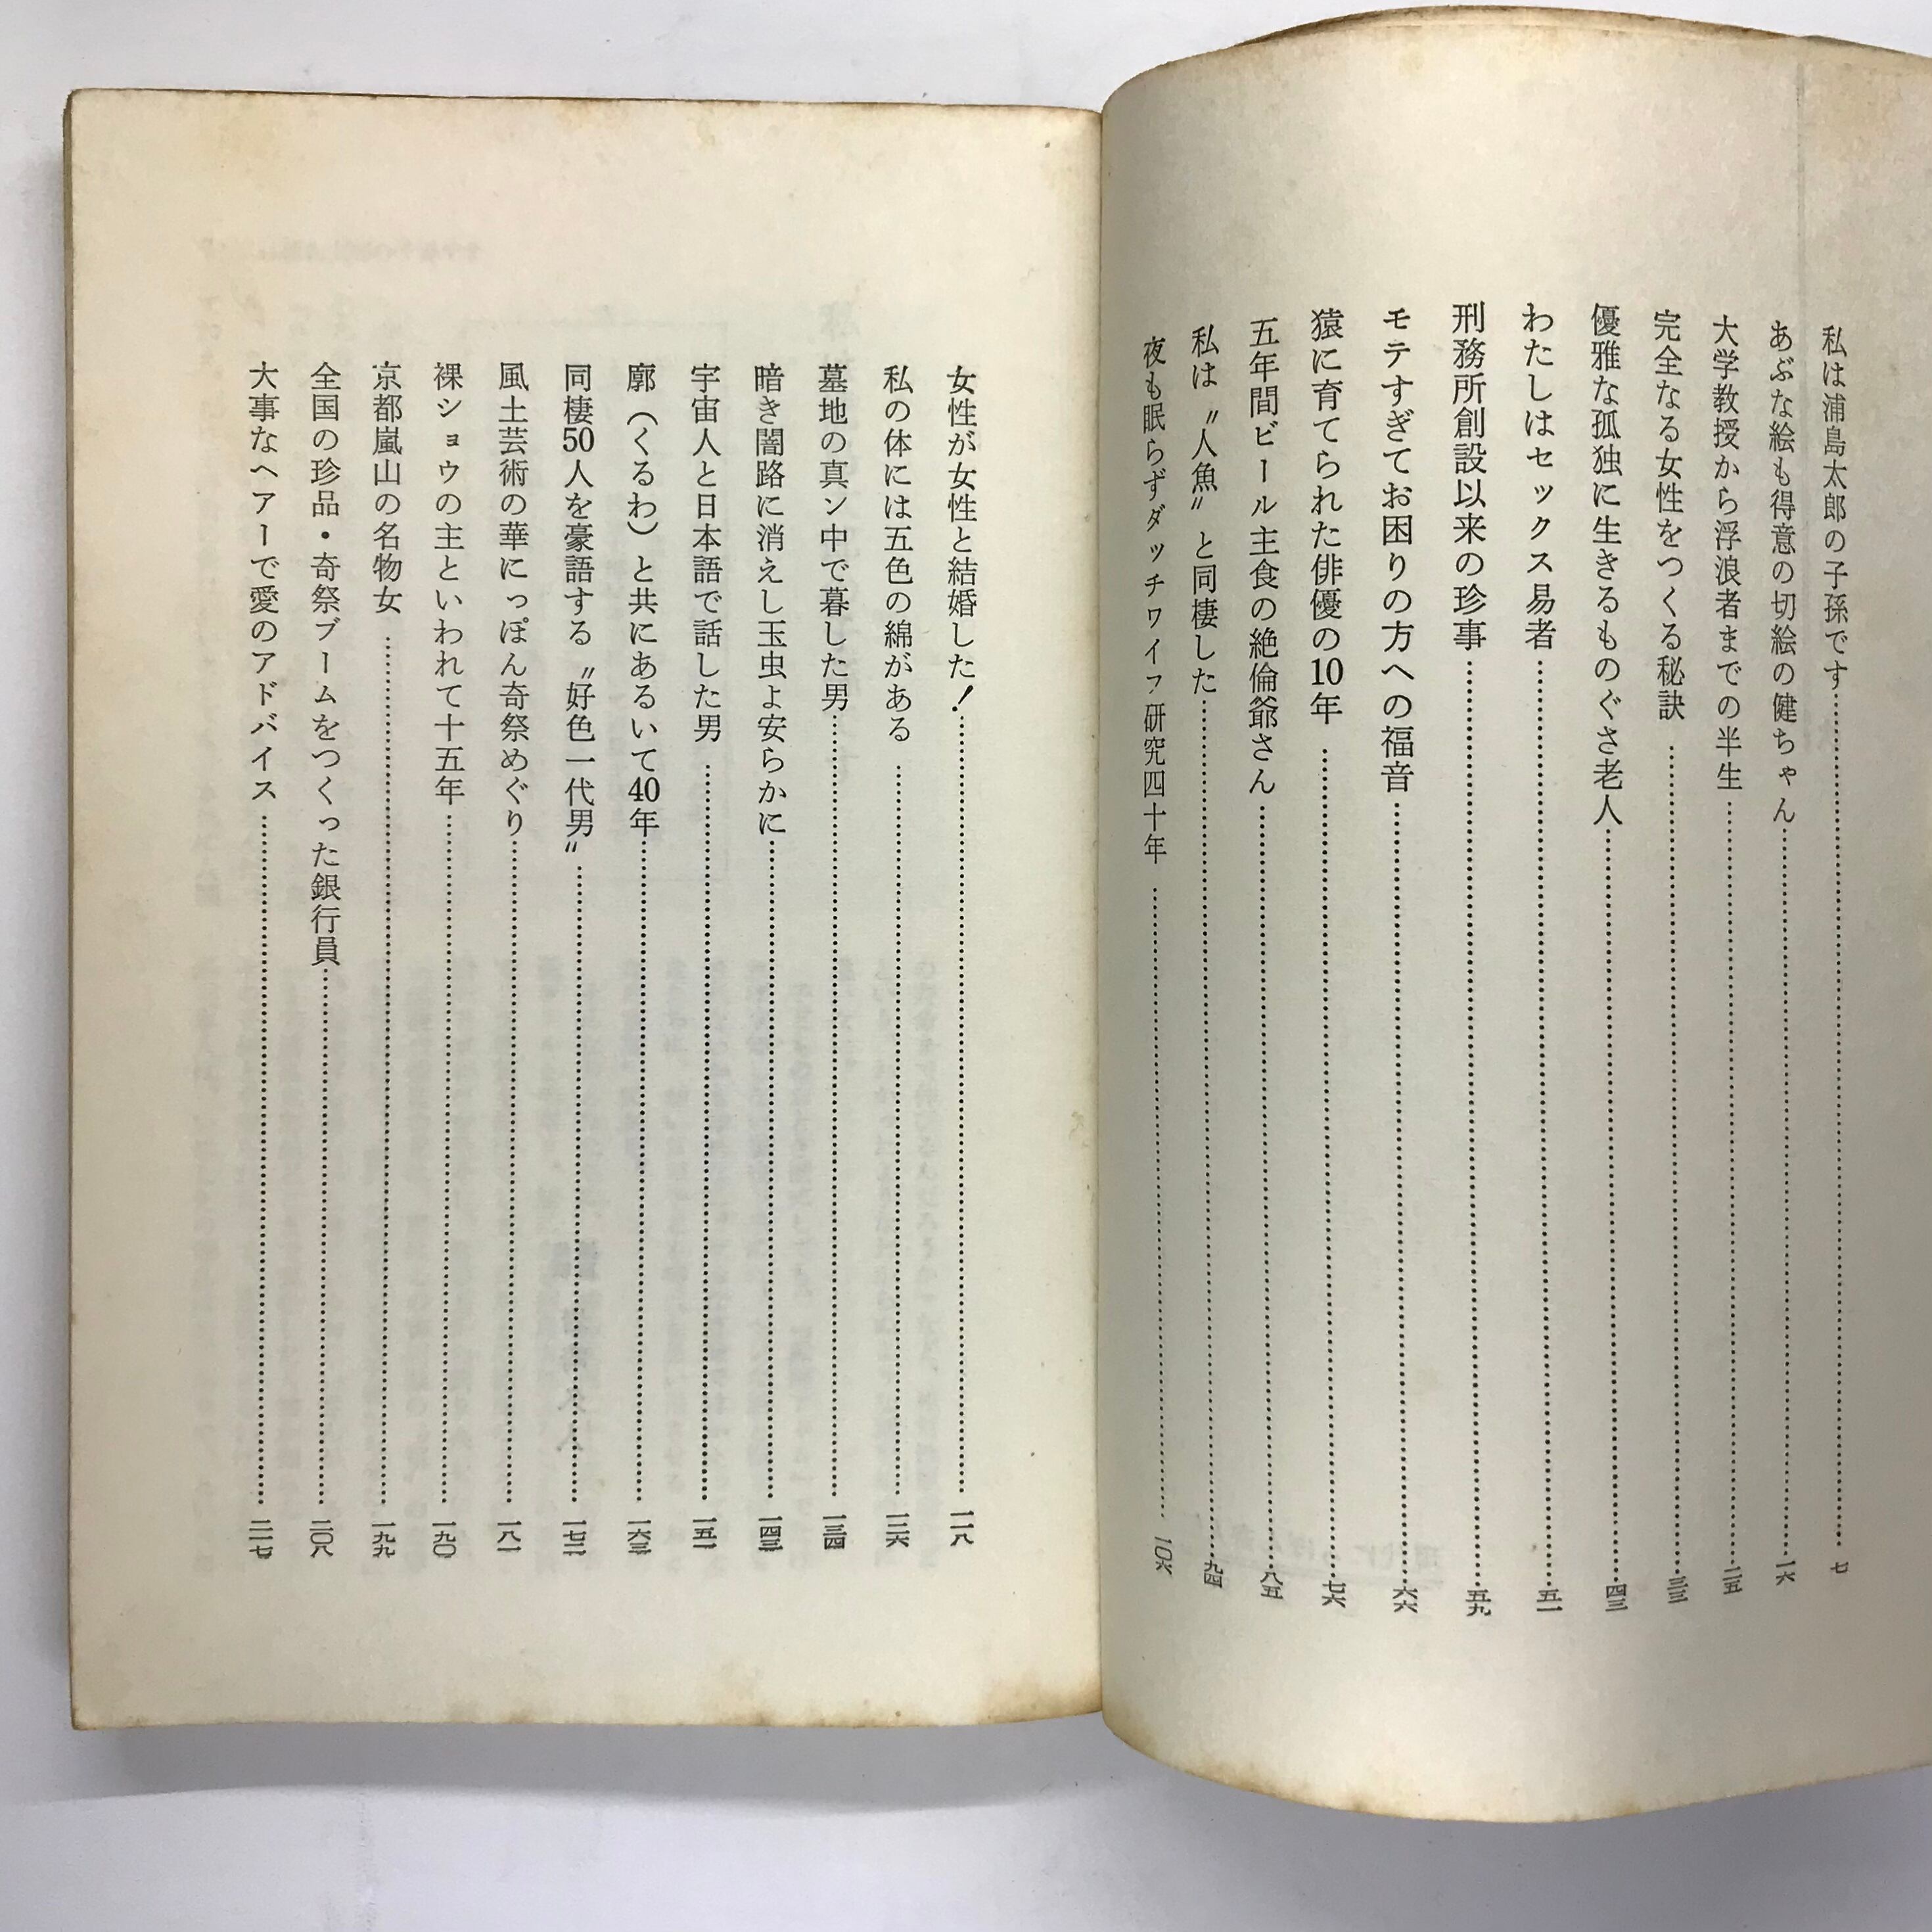 私は浦島太郎の子孫です……七
あぶな絵も得意の切絵の健ちゃん……一六
大学教授から浮浪者までの半生……二五
完全なる女性をつくる秘訣……三三
優雅な孤独に生きるものぐさ老人……四三
わたしはセックス易者……五一
刑務所創設以来の珍事……五九
モテすぎてお困りの方への福音……六六
猿に育てられた俳優の10年……七六
五年間ビール主食の絶倫爺さん……八五
私は〝人魚〟と同棲した……九四
夜も眠らずダッチワイフ研究四十年……一〇六
女性が女性と結婚した！……一一八
私の体には五色の綿がある……一二六
墓地の真ン中で暮した男……一三四
暗き闇路に消えし玉虫よ安らかに……一四三
宇宙人と日本語で話した男……一五二
廓（くるわ）と共にあるいて40年……一六三
同棲50人を豪語する〝好色一代男〟……一七二
風土芸術の華にっぽん奇祭めぐり……一八一
裸ショウの主といわれて十五年……一九〇
京都嵐山の名物女……一九九
全国の珍品・奇祭ブームをつくった銀行員……二〇八
大事なヘアーで愛のアドバイス……二一七